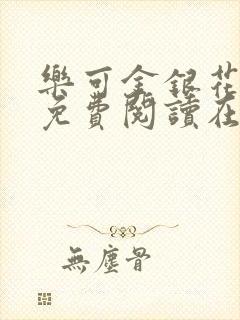 樂可金銀花
免費閱讀在
無塵骨